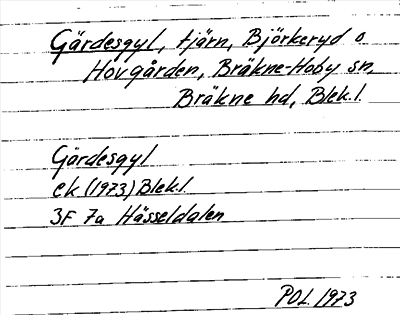 Gärdesgyl, tjärn, Björkeryd o
Hovgården, Bräkne-Hoby sn,
Bräkne hd, Blek.l.
Gärdesgyl
ek (1973) Blek.l.
3F 7a Hässeldalen
POL 1973